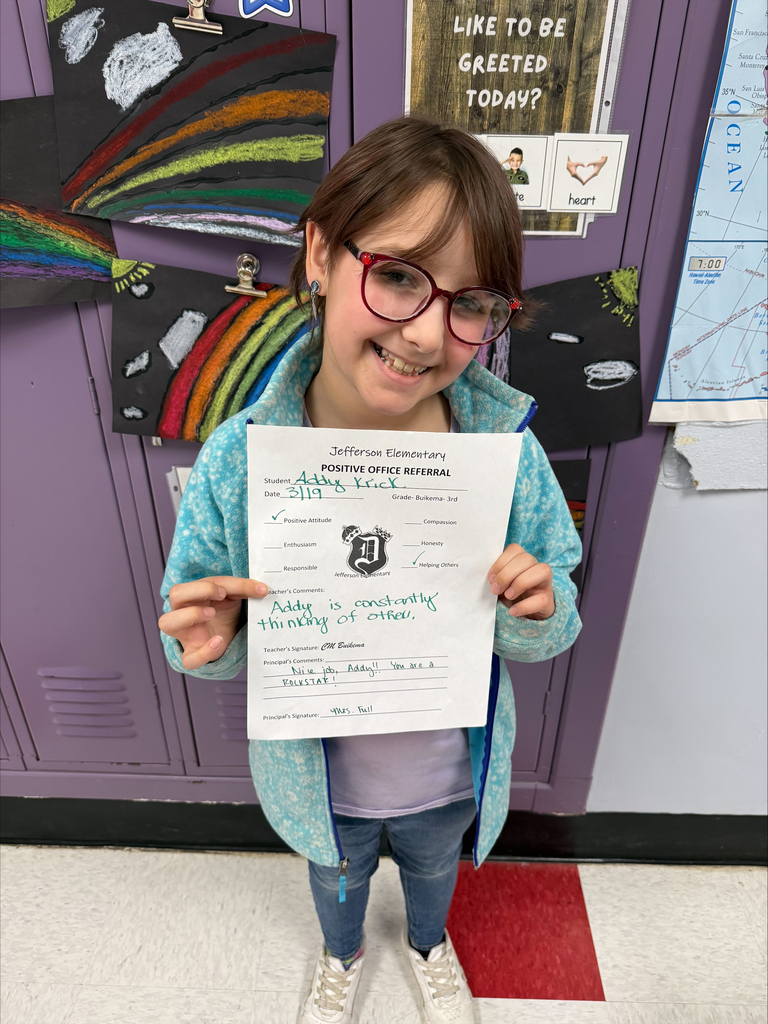 LIKE TO BE
GREETED
TODAY?
heart
OCEAN
35°
30°
7:00
Hawaii-Aleutian
Time Zone
Jefferson Elementary
POSITIVE OFFICE REFERRAL
Student Addy Krick
Date 3/19 Grade- Buikema- 3rd
✓ Positive Attitude ___ Compassion
___ Enthusiasm ___ Honesty
___ Responsible ✓ Helping Others
D
Jefferson Elementary
Teacher's Comments:
Addy is constantly
thinking of others.
Teacher's Signature: CM Buikema
Principal's Comments:
Nice job, Addy!! You are a
ROCKSTAR!
Principal's Signature: Mrs. Full